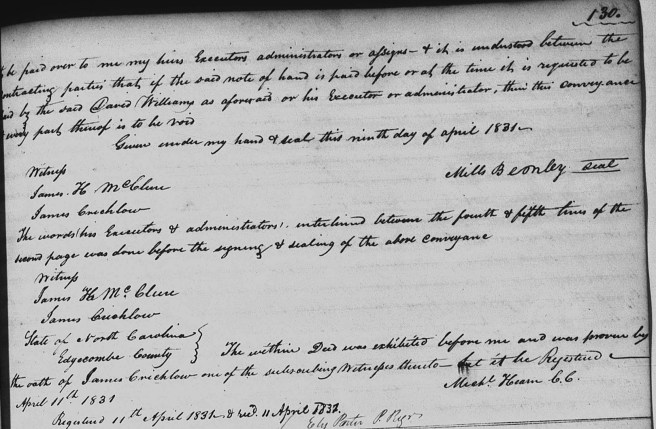 130.
be paid over to me my heirs Executors administrators or assigns - & it is understood between the
contracting parties that if the said note of hand is paid before or at the time it is requested to be
paid by the said David Williams as aforesaid or his Executor or administrator, then this conveyance
every part thereof is to be void
Given under my hand & seal this ninth day of april 1831
Witness
Mills Beonley seal
James. H McClure
James Crichlow
The words (his Executors & administrators) interlined between the fourth & fifth lines of the
second page was done before the signing & sealing of the above conveyance
Witness
James H McClure
James Crichlow
State of North Carolina
Edgecombe County
The within Deed was exhibited before me and was proven by
the oath of James Crichlow one of the subscribing Witnesses thereto - Let it be Registered
April 11th 1831
Michl Hearn C.C.
Registered 11th April 1831 &
11 April
Porter P. Regr